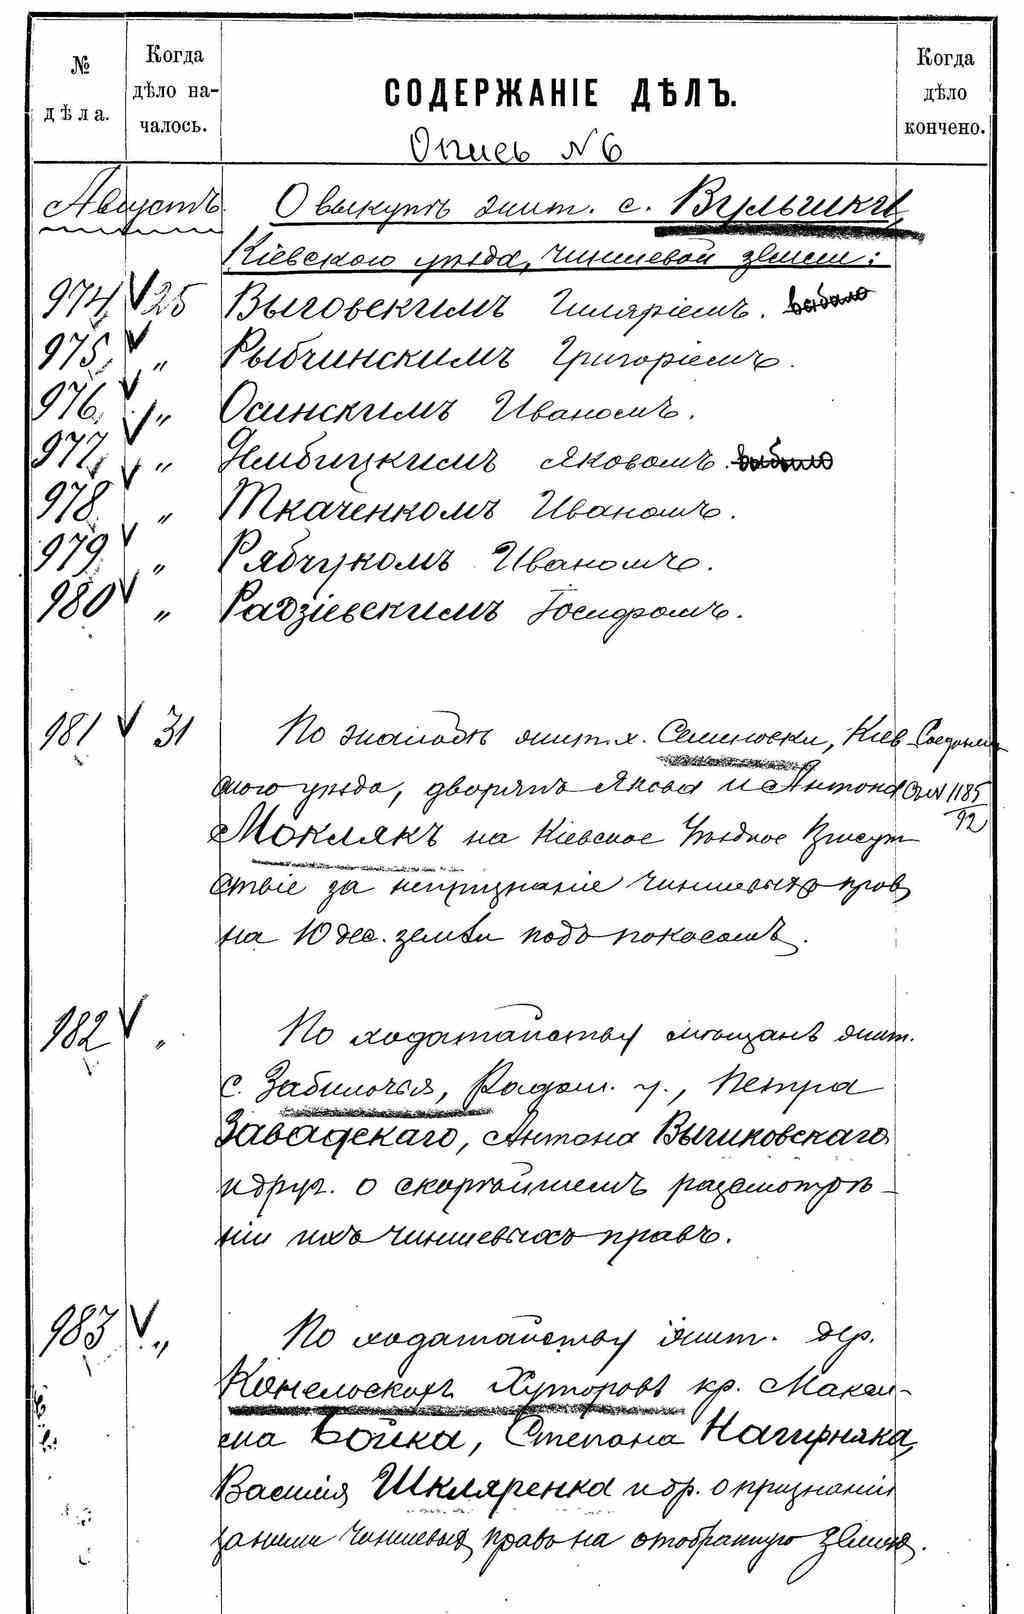 № дѣла.
Когда дѣло на-чалось.
СОДЕРЖАНІЕ ДѢЛЪ.
Когда дѣло кончено.
Опись N 6
Августъ. О выкупѣ жит. с. Вульшки,
Кіевскаго уѣзда, чиншевой земли:
974 25 Выговскимъ Гиляріемъ. выбыло
975 „ Рыбчинскимъ Григоріемъ.
976 „ Осинскимъ Иваномъ.
977 „ Яковомъ. выбыло
978 „ Ткаченкомъ Иваномъ.
979 „ Рябчукомъ Иваномъ.
980 „ Радзіевскимъ Іосифомъ.
981 31 По жалобѣ жит. х. Семиноски, Кіев-
скаго уѣзда, дворянъ Якова и Антона
Мокляк на Кіевское Уѣздное Присут-
ствіе за непризнаніе чиншевыхъ правъ
на 10 дес. земли подъ покосомъ.
1185/92
982 „ По ходатайству мѣщанъ жит.
с. Забилочья, Радом. у., Петра
Завадскаго, Антона Вычиковскаго
и друг. о скорѣйшемъ разсмотрѣ-
ніи ихъ чиншевыхъ правъ.
983 „ По ходатайству жит. дер.
Конелоскихъ Хуторовъ кр. Макси-
ма Бойка, Степана Нагирняка,
Василія Шкляренка и др. о признаніи
за ними чиншевыхъ правъ на отобранную землю.